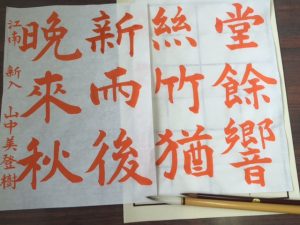 堂餘響
絲竹猶
新雨後
晩來秋
江南 新入 山中美登樹